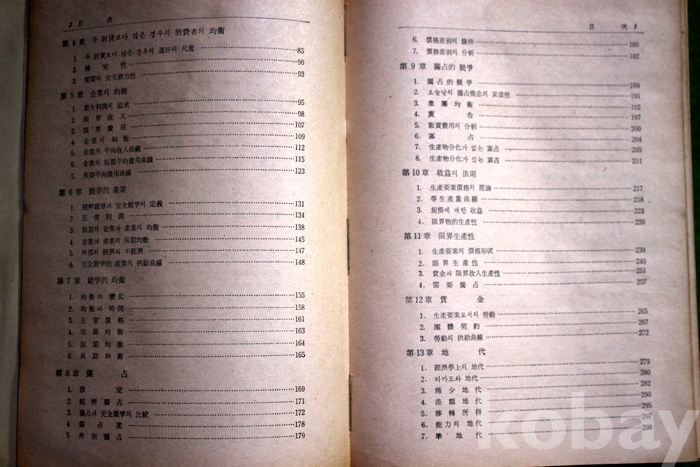 2 目 次
第 4 章 두 財貨보다 많은 경우의 消費者의 均衡
1. 두 財貨보다 많은 경우의 選好의 尺度 85
2. 補 完 代 90
3. 需要의 交叉彈力性 93
第 5 章 企業의 均衡
1. 最大利潤의 追求 95
2. 限 界 收 入 98
3. 限 界 費 用 107
4. 企業의 均 衡 109
5. 企業의 平均收入曲線 112
6. 企業의 短期平均費用曲線 115
7. 長期平均費用曲線 123
第 6 章 競爭的 產業
1. 純粹競爭과 完全競爭의 定義 131
2. 正 常 利 潤 134
3. 短期의 企業과 產業의 均衡 138
4. 企業과 產業의 長期均衡 145
5. 外部的 經濟와 不經濟 147
6. 完全競爭的 產業의 供給曲線 148
第 7 章 競爭的 均衡
1. 均衡과 變化 155
2. 均衡과 時間 158
3. 正 常 價 格 161
4. 市 場 均 衡 163
5. 短 期 均 衡 164
6. 長 期 均 衡 165
第 8 章 獨 占
1. 假 定 169
2. 純 粹 獨 占 171
3. 獨占과 完全競爭의 比較 172
4. 獨 占 度 178
5. 差 別 獨 占 179
目 次 3
6. 價格差別의 條件 180
7. 價格差別의 分析 182
第 9 章 獨占的 競爭
1. 獨 占 的 競 爭 189
2. 오늘날의 獨占概念의 妥當性 191
3. 集 團 均 衡 192
4. 廣 告 197
5. 販賣費用의 分析 200
6. 寡 占 204
7. 生產物分化가 없는 寡占 205
8. 生產物分化가 있는 寡占 211
第 10 章 收益의 法則
1. 生產要素價格의 理論 217
2. 等生產量曲線 218
3. 規模에 대한 收益 223
4. 限界物的生產性 230
第 11 章 限界生產性
1. 生產要素의 價格形成 239
2. 限 界 生 產 性 240
3. 賃金과 限界收入生產性 251
4. 需 要 獨 占 257
第 12 章 賃 金
1. 生產要素로서의 勞動 265
2. 團 體 契 約 267
3. 勞動의 供給曲線 272
第 13 章 地 代
1. 經濟學上의 地代 279
2. 리카도와 地代 280
3. 稀 少 地 代 282
4. 差 額 地 代 290
5. 移 轉 所 得 292
6. 能力의 地代 295
7. 準 地 代 298
kobay